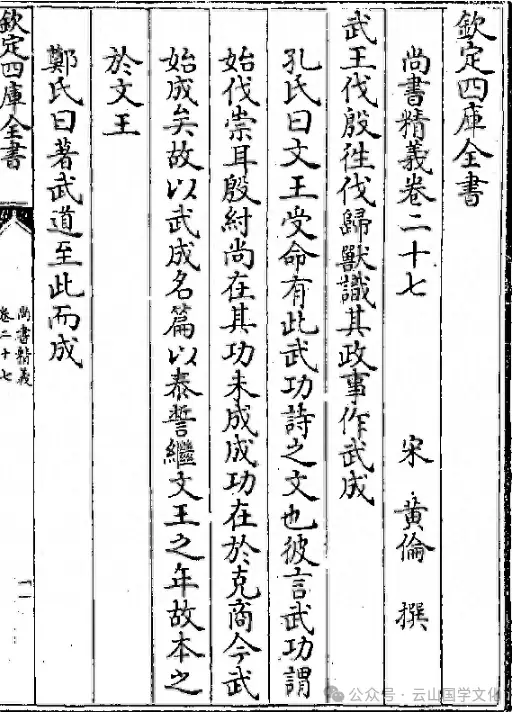 欽定四庫全書
尚書精義卷二十七
宋 黃倫 撰
武王伐殷往伐歸獸識其政事作武成
孔氏曰文王受命有此武功詩之文也彼言武功謂
始伐崇耳殷紂尚在其功未成成功在於克商今武
始成矣故以武成名篇以泰誓繼文王之年故本之
於文王
鄭氏曰著武道至此而成
欽定四庫全書
尚書精義
卷二十七
一
公众号·云山国学文化